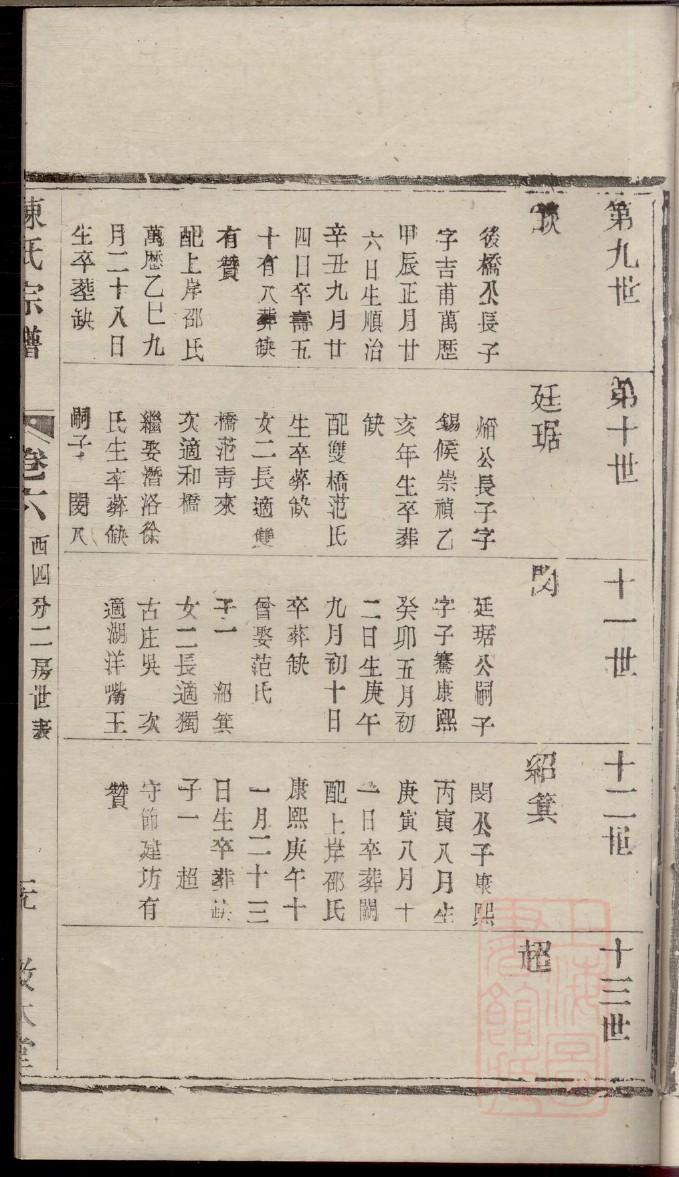 第九世
後橋公長子
字吉甫萬歴
甲辰正月廿
六日生順治
辛丑九月廿
四日卒壽五
十有八葬缺
有贊
配上岸邵氏
萬歴乙巳九
月二十八日
生卒塟缺
第十世
廷琚
公長子字
錫侯崇禎乙
亥年生卒葬
缺
配雙橋范氏
生卒葬缺
女二長適雙
橋范靑來
次適和橋
繼娶潛洛徐
氏生卒葬缺
嗣子 閔
十一世
閔
廷琚公嗣子
字子騫康熙
癸卯五月初
二日生庚午
九月初十日
卒葬缺
曾娶范氏
子一 紹箕
女二長適獨
古庄吳 次
適湖洋嘴王
十二世
紹箕
閔公子康熙
丙寅八月生
庚寅八月十
一日卒葬闕
配上岸邵氏
康熙庚午十
一月二十三
日生卒葬缺
子一 超
守節建坊有
贊
十三世
超
陳氏宗譜
卷六
西四分二房世表
上海圖書館藏